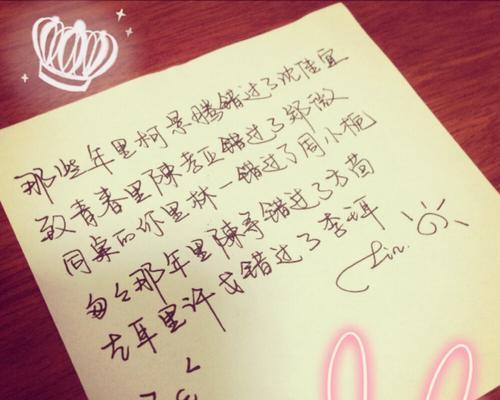 那些年里柯景腾错过了沈佳宜
致青春里陳孝正错过了郑微
同桌的你里林一错过了周小栀
匆匆那年里陳寻错过了方茴
左耳里许弋错过了李珥